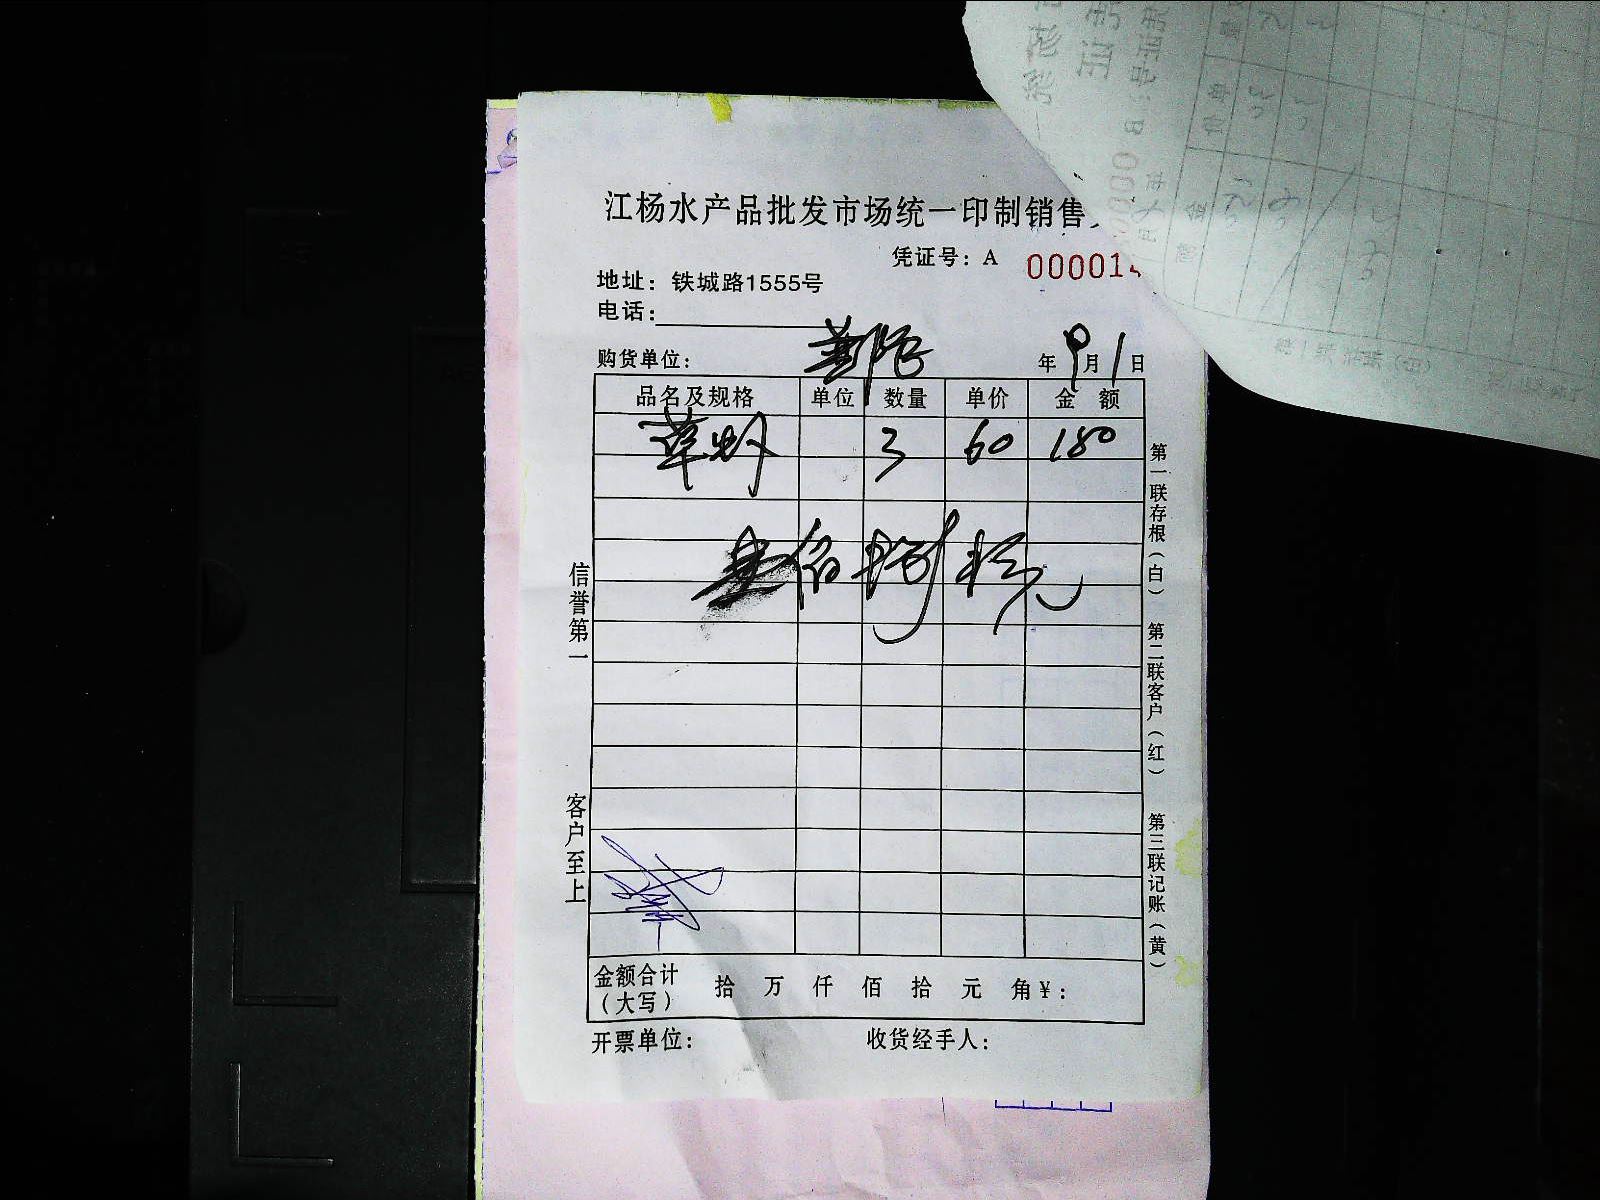 江杨水产品批发市场统一印制销售
凭证号：A 00001
地址：铁城路1555号
电话：
购货单位： 年9月1日
品名及规格 单位 数量 单价 金额
草虾 3 60 180
壹佰捌拾元
信誉第一
客户至上
第一联存根（白）
第二联客户（红）
第三联记账（黄）
金额合计（大写） 拾 万 仟 佰 拾 元 角 ¥：
开票单位： 收货经手人：